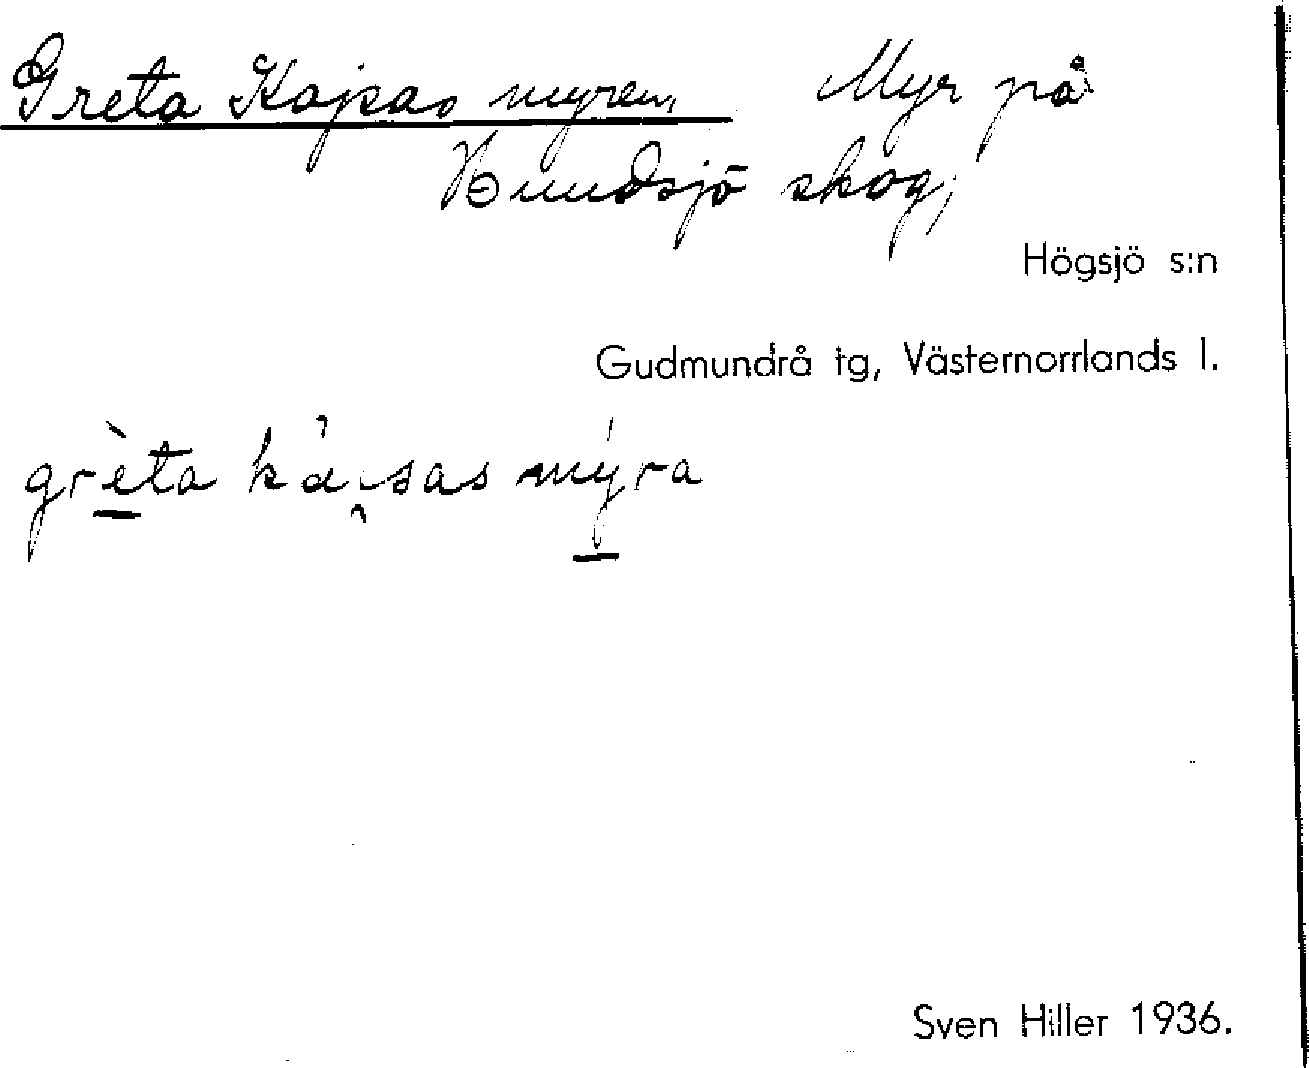 Greta Kajsas myren, Myr på
Hundsjö skog,
Högsjö s:n
Gudmundrå tg, Västernorrlands l.
grèta kàisas mýra
Sven Hiller 1936.